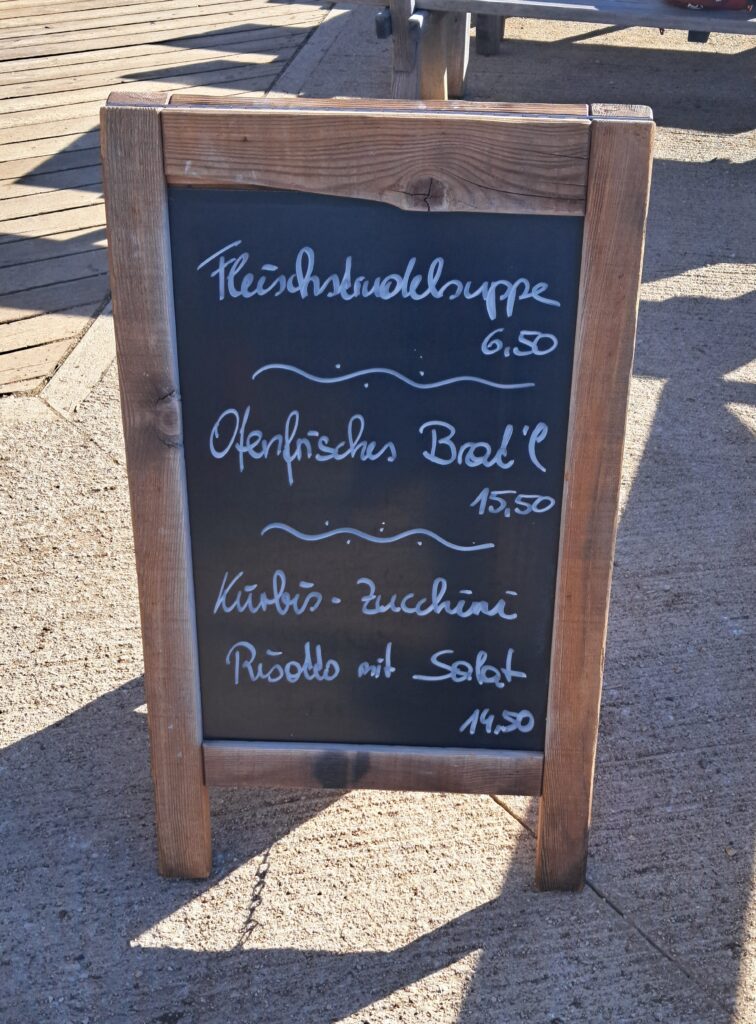 Fleischstrudelsuppe
6,50
Ofenfrisches Brat'l
15,50
Kürbis - Zucchini
Risotto mit Salat
14,50